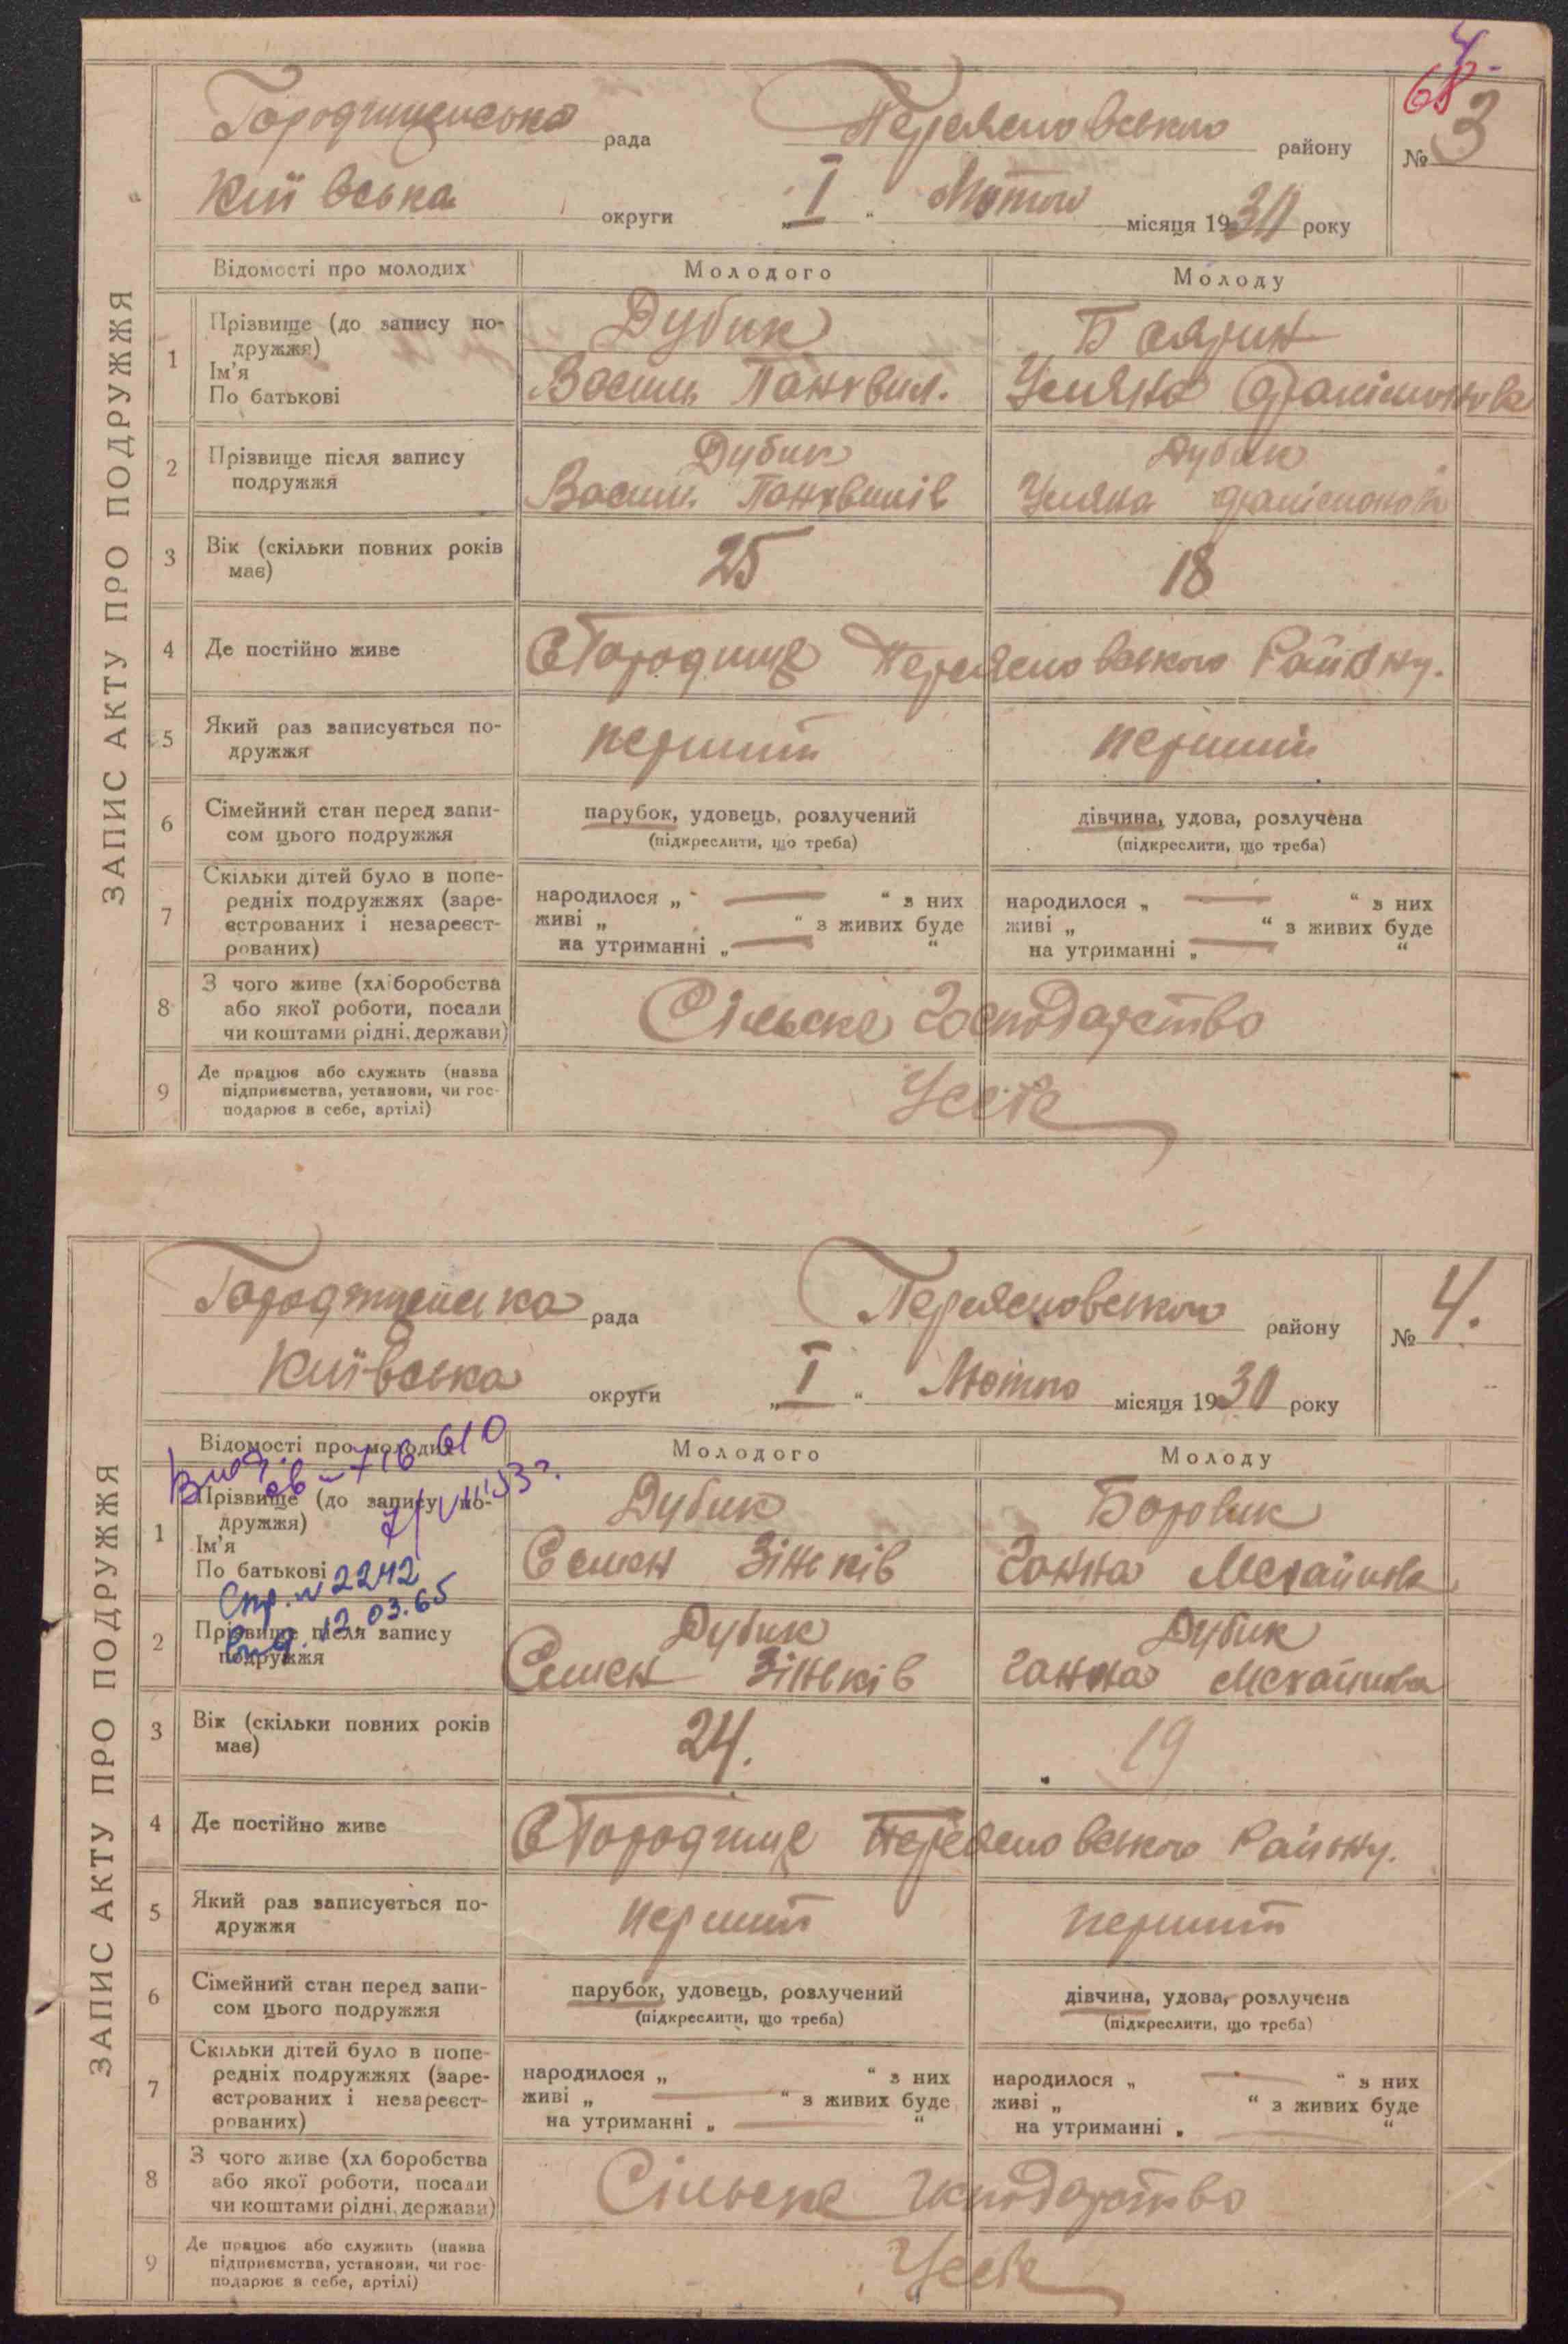 4.
68
Городищенська рада Переясловського району № 3
Київська округи „I“ Лютого місяця 1930 року
ЗАПИС АКТУ ПРО ПОДРУЖЖЯ
Відомості про молодих Молодого Молоду
1 Прізвище (до запису по-
дружжя)
Ім'я
По батькові
Дубик Боярин
Василь Панхвил. Уляна
2 Прізвище після запису
подружжя
Дубик Дубик
Василь Панхвилів Уляна
3 Вік (скільки повних років
має)
25 18
4 Де постійно живе С Городище Переясловського Району.
5 Який раз записується по-
дружжя
перший перший
6 Сімейний стан перед запи-
сом цього подружжя
парубок, удовець, розлучений дівчина, удова, розлучена
(підкреслити, що треба) (підкреслити, що треба)
7 Скільки дітей було в попе-
редніх подружжях (заре-
єстрованих і незареєст-
рованих)
народилося „ — “ з них народилося „ — “ з них
живі „ “ з живих буде живі „ “ з живих буде
на утриманні „ — “ на утриманні „ — “
8 З чого живе (хліборобства
або якої роботи, посади
чи коштами рідні, держави)
Сільське Господарство
9 Де працює або служить (назва
підприємства, установи, чи гос-
подарює в себе, артілі)
Усебе
Городищенська рада Переясловського району № 4.
Київська округи „I“ Лютого місяця 1930 року
ЗАПИС АКТУ ПРО ПОДРУЖЖЯ
Відомості про молодих Молодого Молоду
1 Прізвище (до запису по-
дружжя)
Ім'я
По батькові
Дубик Боровик
Семен Зіньків Ганна Мехайлова
Спр. № 2242
12.03.65
2 Прізвище після запису
подружжя
Дубик Дубик
Семен Зіньків Ганна Мехайлова
3 Вік (скільки повних років
має)
24. 19
4 Де постійно живе С Городище Переясловського Району.
5 Який раз записується по-
дружжя
перший перший
6 Сімейний стан перед запи-
сом цього подружжя
парубок, удовець, розлучений дівчина, удова, розлучена
(підкреслити, що треба) (підкреслити, що треба)
7 Скільки дітей було в попе-
редніх подружжях (заре-
єстрованих і незареєст-
рованих)
народилося „ “ з них народилося „ — “ з них
живі „ — “ з живих буде живі „ “ з живих буде
на утриманні „ — “ на утриманні „ — “
8 З чого живе (хл боробства
або якої роботи, посади
чи коштами рідні, держави)
Сільське господарство
9 Де працює або служить (назва
підприємства, установи, чи гос-
подарює в себе, артілі)
Усебе